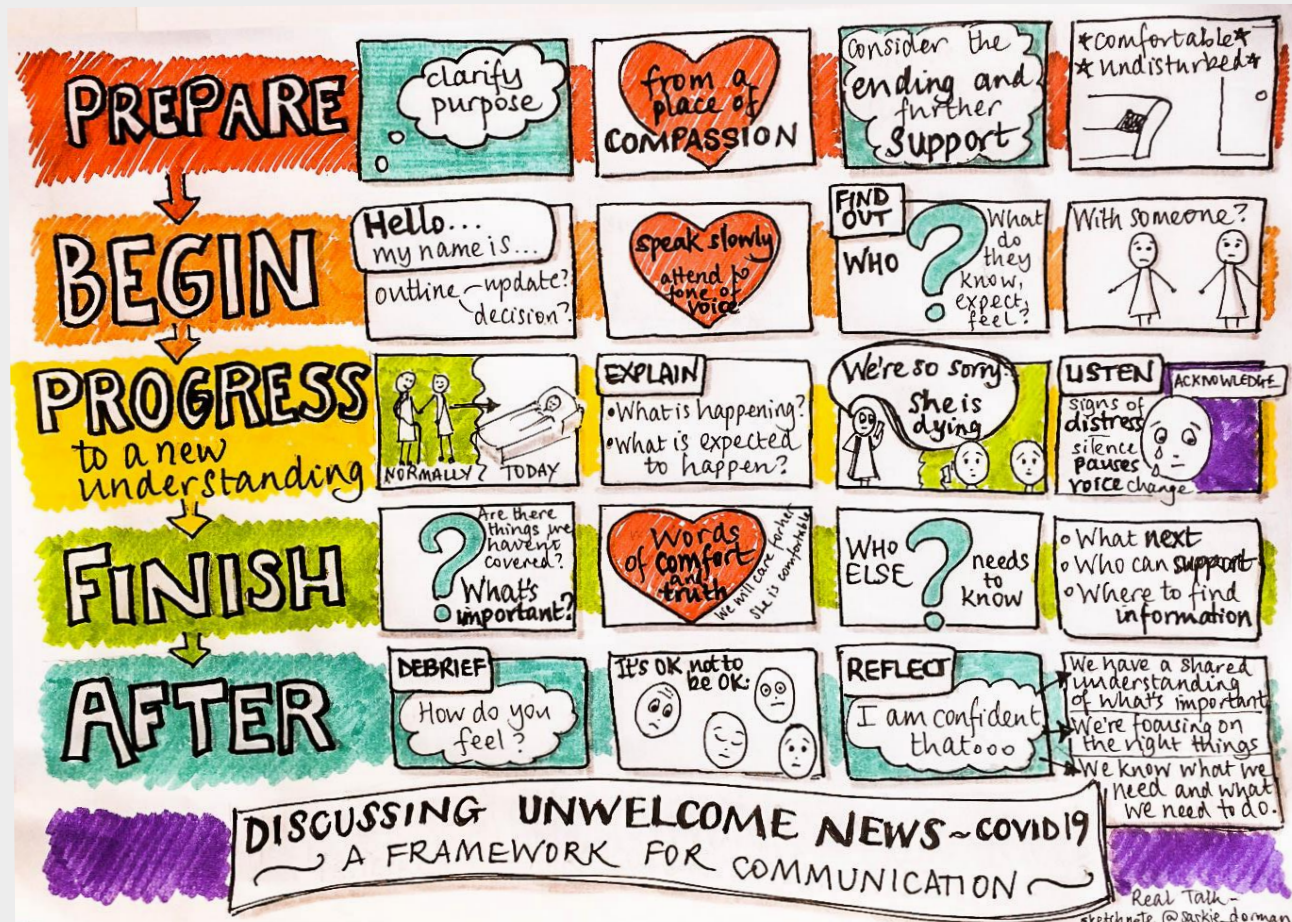 PREPARE
clarify
purpose
from a
place of
COMPASSION
consider the
ending and
further
support
*comfortable*
*undisturbed*
BEGIN
Hello...
my name is...
outline
update?
decision?
speak slowly
attend to
tone of
voice
FIND
OUT
WHO
?
What
do
they
know,
expect,
feel?
With someone?
PROGRESS
to a new
understanding
NORMALLY? TODAY
EXPLAIN
•What is happening?
•What is expected
to happen?
We're so sorry
she is
dying
LISTEN
ACKNOWLEDGE
signs of
distress
silence
pauses
voice change
FINISH
?
Are there
things we
haven't
covered?
What's
important?
Words
of comfort
and
truth
We will care for her
She is comfortable
WHO
ELSE
?
needs
to
know
○ What next
○ Who can support
○ Where to find
information
AFTER
DEBRIEF
How do you
feel?
It's OK not to
be OK.
REFLECT
I am confident
that...
We have a shared
understanding
of what's important
We're focusing on
the right things
We know what we
need and what
we need to do.
DISCUSSING UNWELCOME NEWS ~ COVID19
~ A FRAMEWORK FOR COMMUNICATION ~
Real Talk-
sketchnote @saskie_dorman